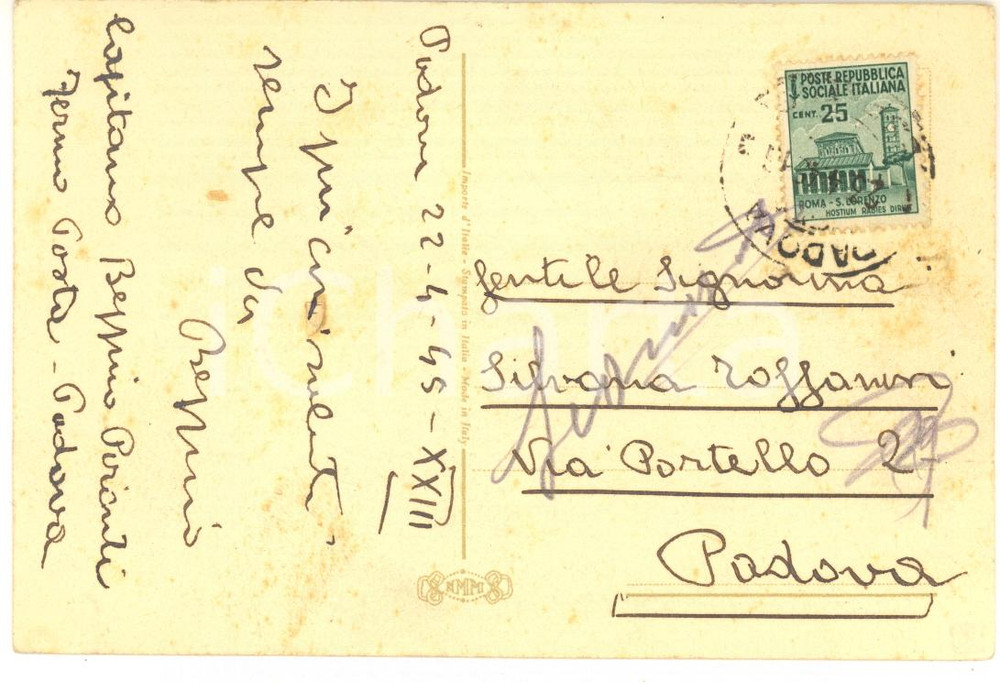 Padova 22-4-45-XXIII
I più cari saluti
sempre da
Beppino
Capitano Beppino
Fermo Posta - Padova
Imposte d'Italia - Stampata in Italia - Made in Italy
POSTE REPUBBLICA
SOCIALE ITALIANA
CENT. 25
ROMA - S. LORENZO
HOSTIUM RABIES DIRUIT
PADOVA
Gentile Signorina
Silvana
Via Portello 2
Padova
NMM
iCharta